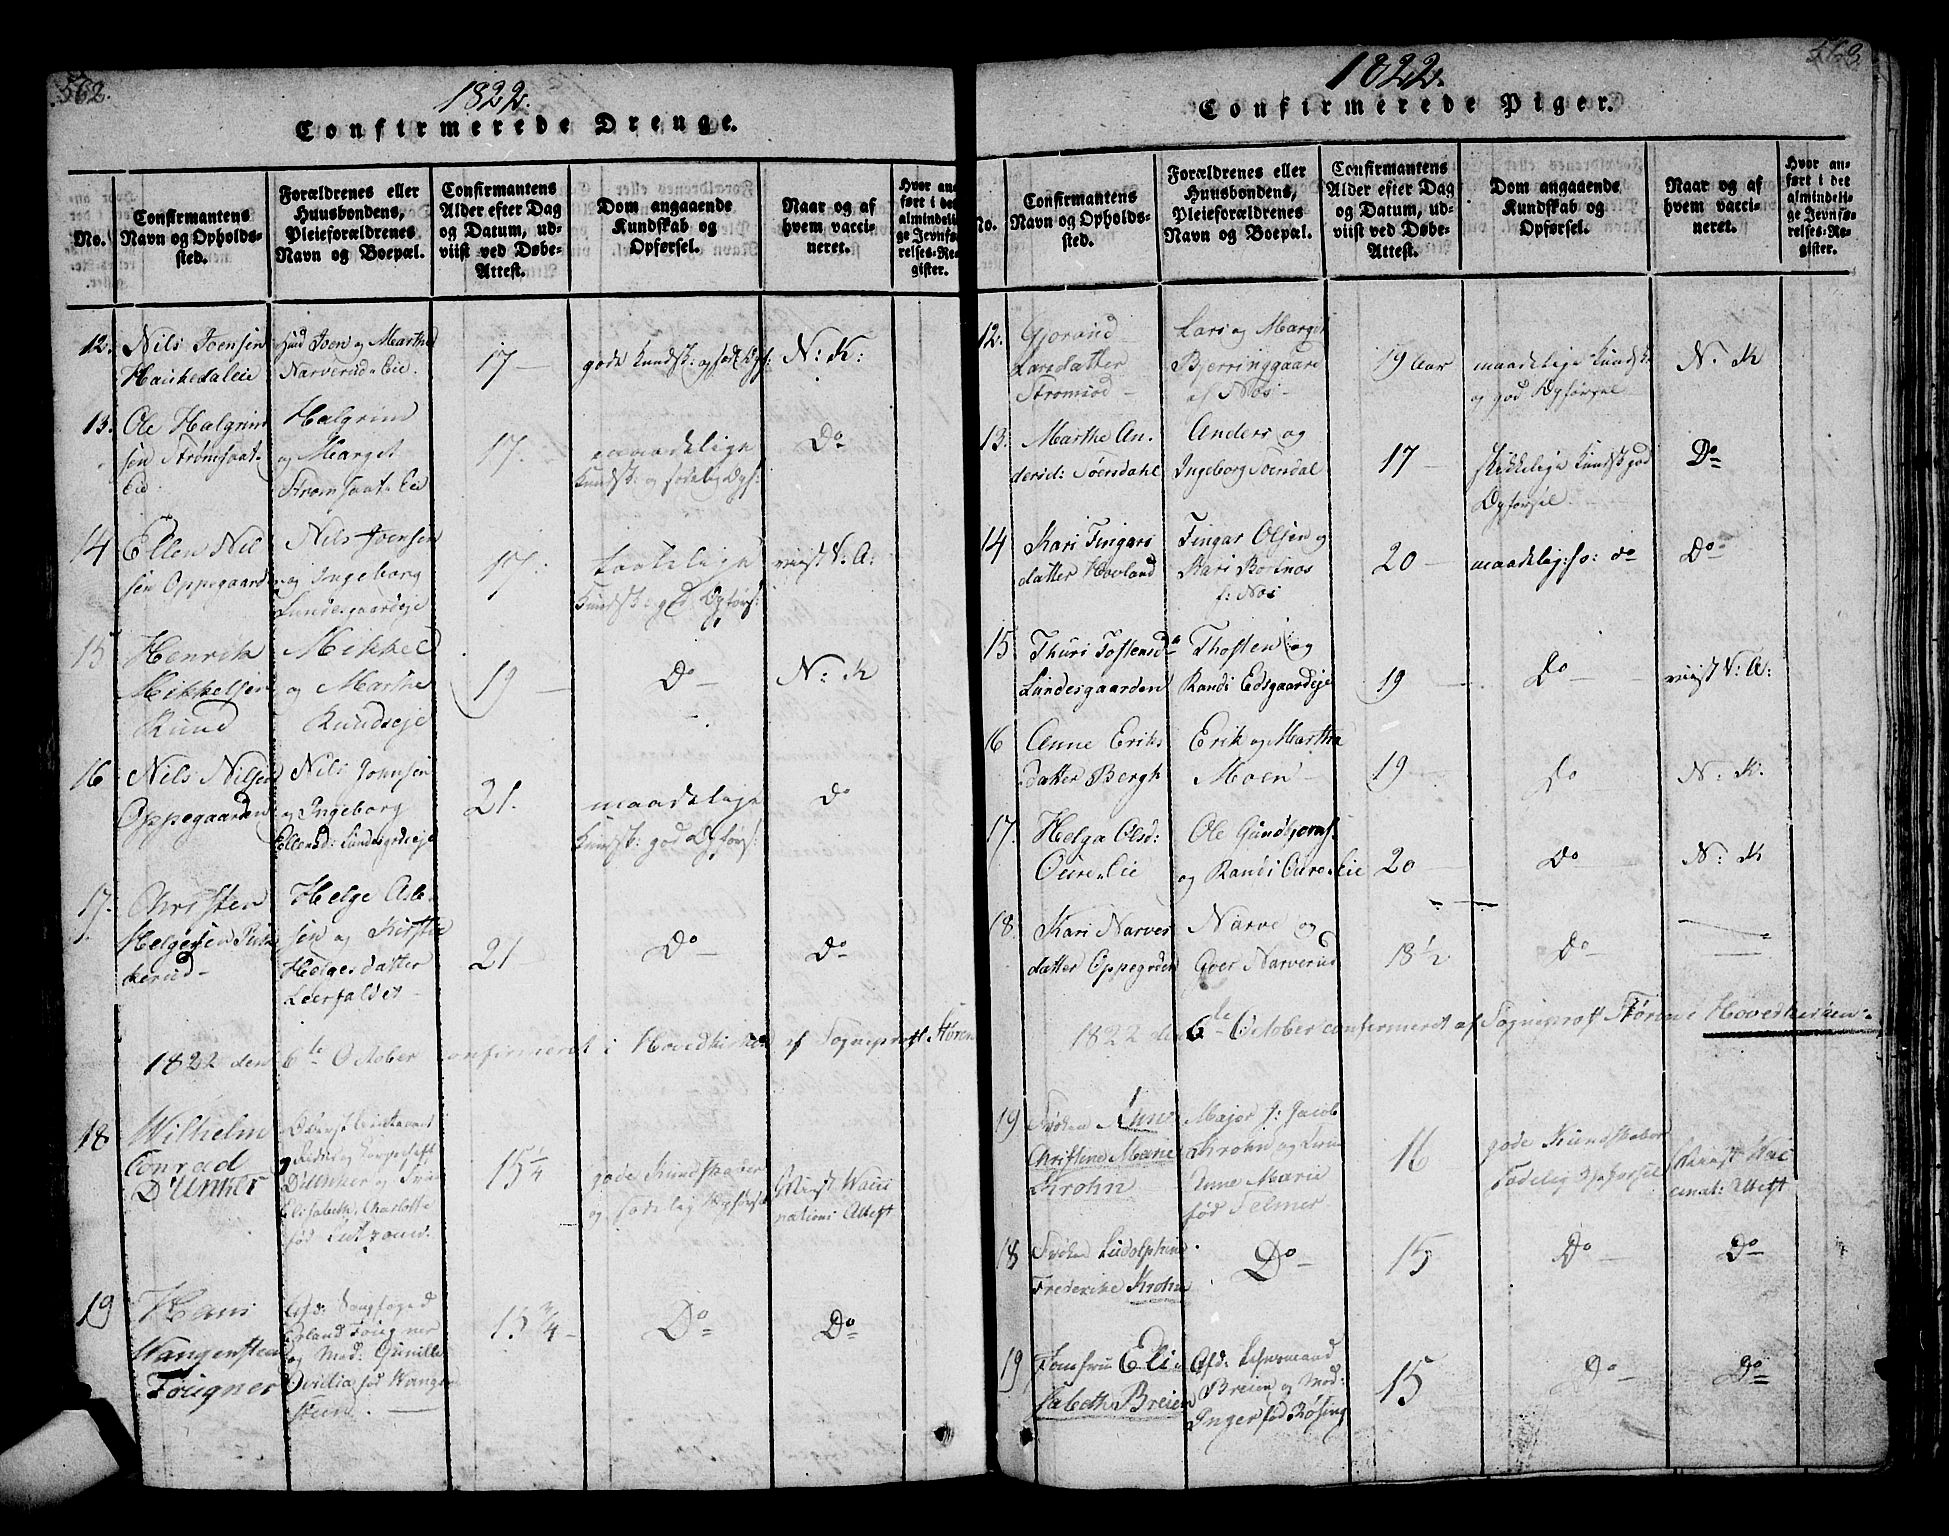 562.
1822.
Confirmerede Drenge.
No.
Confirmantens
Navn og Opholds-
sted.
Forældrenes eller
Huusbondens,
Pleieforældrenes
Navn og Boepæl.
Confirmantens
Alder efter Dag
og Datum, ud-
viist ved Døbe-
Attest.
Dom angaaende
Kundskab og
Opførsel.
Naar og af
hvem vacci-
neret.
Hvor an-
ført i det
almindeli-
ge Jevnfø-
relses-Re-
gister.
12. Nils Joensen
Joen og Marthe
Narverud Eie.
17 —
gode Kundsk: og
N: K:
13. Ole Halgrim
sen Strømsaat-
Eie
Halgrim
og Marget
Strømsaat Eie
17.
maadelige
Kundsk: og
Do
14 Ellen Nil
sen Oppegaard
Nils Joensen
og Ingeborg
Lundesgaardeje
17.
taalelige
Kundsk: god Opførs:
viist V: A:
15 Henrik
Mikkelsen
Ruud
Mikkel
og Marthe
Ruudseje
19 —
Do —
N: K
16 Nils Nilsen
Oppegaarden
Nils Johnsen
og Ingeborg
Ellensd: Lundesgrdseje
21.
maadelige
Kundsk: god Opførs:
do
17. Christen
Helgesen
kerud —
Helge Asle-
sen og Kirstie
Helgesdatter
Leerfaldet
21 —
Do —
Do
1822 den 6te October confirmeret i Hovedkirken af Sogneprost Støren
18 Wilhelm
Conrad
D'Unker
D'Unker og
Elisabeth Charlotte
født
15 1/4
gode Kundskaber
og
viist Vacci
nations Attest
19 Hans
Wangensteen
Fougner
Erland Fougner
og Mad: Gunille
Ovidia fød Wangen
steen. —
15 3/4 —
Do
Do
568
1822.
Confirmerede Piger.
No.
Confirmantens
Navn og Opholds-
sted.
Forældrenes eller
Huusbondens,
Pleieforældrenes
Navn og Boepæl.
Confirmantens
Alder efter Dag
og Datum, ud-
viist ved Døbe-
Attest.
Dom angaaende
Kundskab og
Opførsel.
Naar og af
hvem vacci-
neret.
Hvor an-
ført i det
almindeli-
ge Jevnfø-
relses-Re-
gister.
12. Gjorand
Larsdatter
Strømsod —
Lars og Marget
Bjerringgaard
af Næs —
19 Aar
maadelige Kundsk
og god Opførsel
N. K
13. Marthe An-
dersd: Søendahl
Anders og
Ingeborg Søendal
17 —
skikkelige Kundsk god
Opførsel
Do
14 Kari Fingars
datter Hovland
Fingar Olsen og
Kari
f: Næs
20 —
maadelig: do
Do
15 Thuri Tostensd
Lundesgaarden
Thosten og
Randi Edsgaardeje
19 —
Do —
viist V: A:
16 Anne Eriks
datter Bergh
Erik og Martha
Moen —
19
do
N: K.
17. Helga Olsd:
Oure Eie
Ole Gundbjørns:
og Randi Oure Eie
20
Do
N: K
18. Kari Narves
datter Oppegrden
Narve og
Goer Narverud
18 1/2
Do
—
1822 den 6te October confirmeret af Sogneprost Støren i Hovedkirken.
19 Frøken Anne
Christine Marie
Krohn
Major J: Jacob
Krohn og Frue
Anne Marie
fød Telmer
16
gode Kundskaber
Sædelig Opførsel
viist Vac
cinat: Attest
18 Frøken Ludolphine
Frederikke Krohn
Do —
15
Do —
Do
19 Jomfru Eli-
sabeth Breien
Breien og Mad:
Inger fød Røsing
15
Do
Do